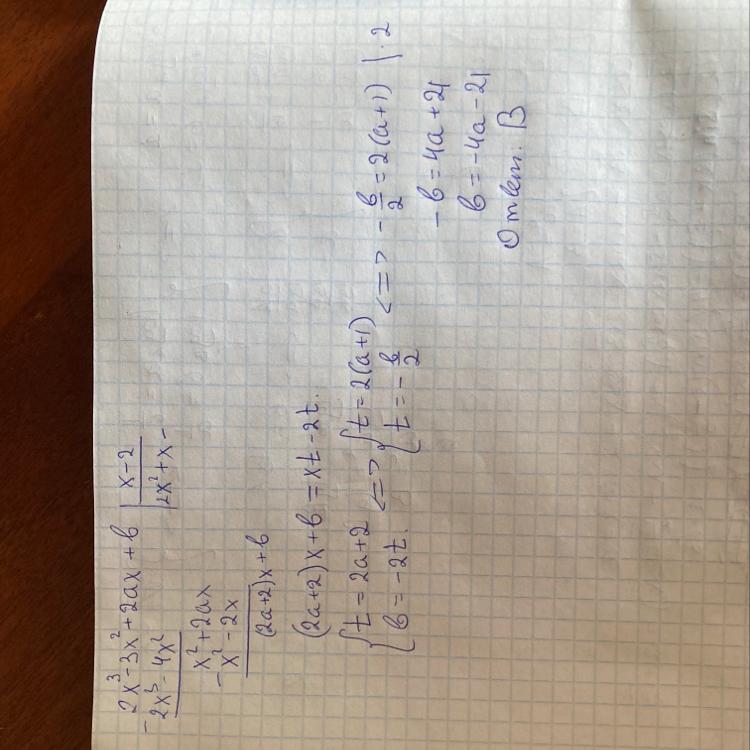 2x³-3x²+2ax+b | x-2
-2x³-4x² | 2x²+x-
x²+2ax
-x²-2x
(2a+2)x+b
(2a+2)x+b=xt-2t.
{t=2a+2 <=> {t=2(a+1) <=> -b/2=2(a+1) |·2
{b=-2t. {t=-b/2
-b=4a+4
b=-4a-4
Ответ: B